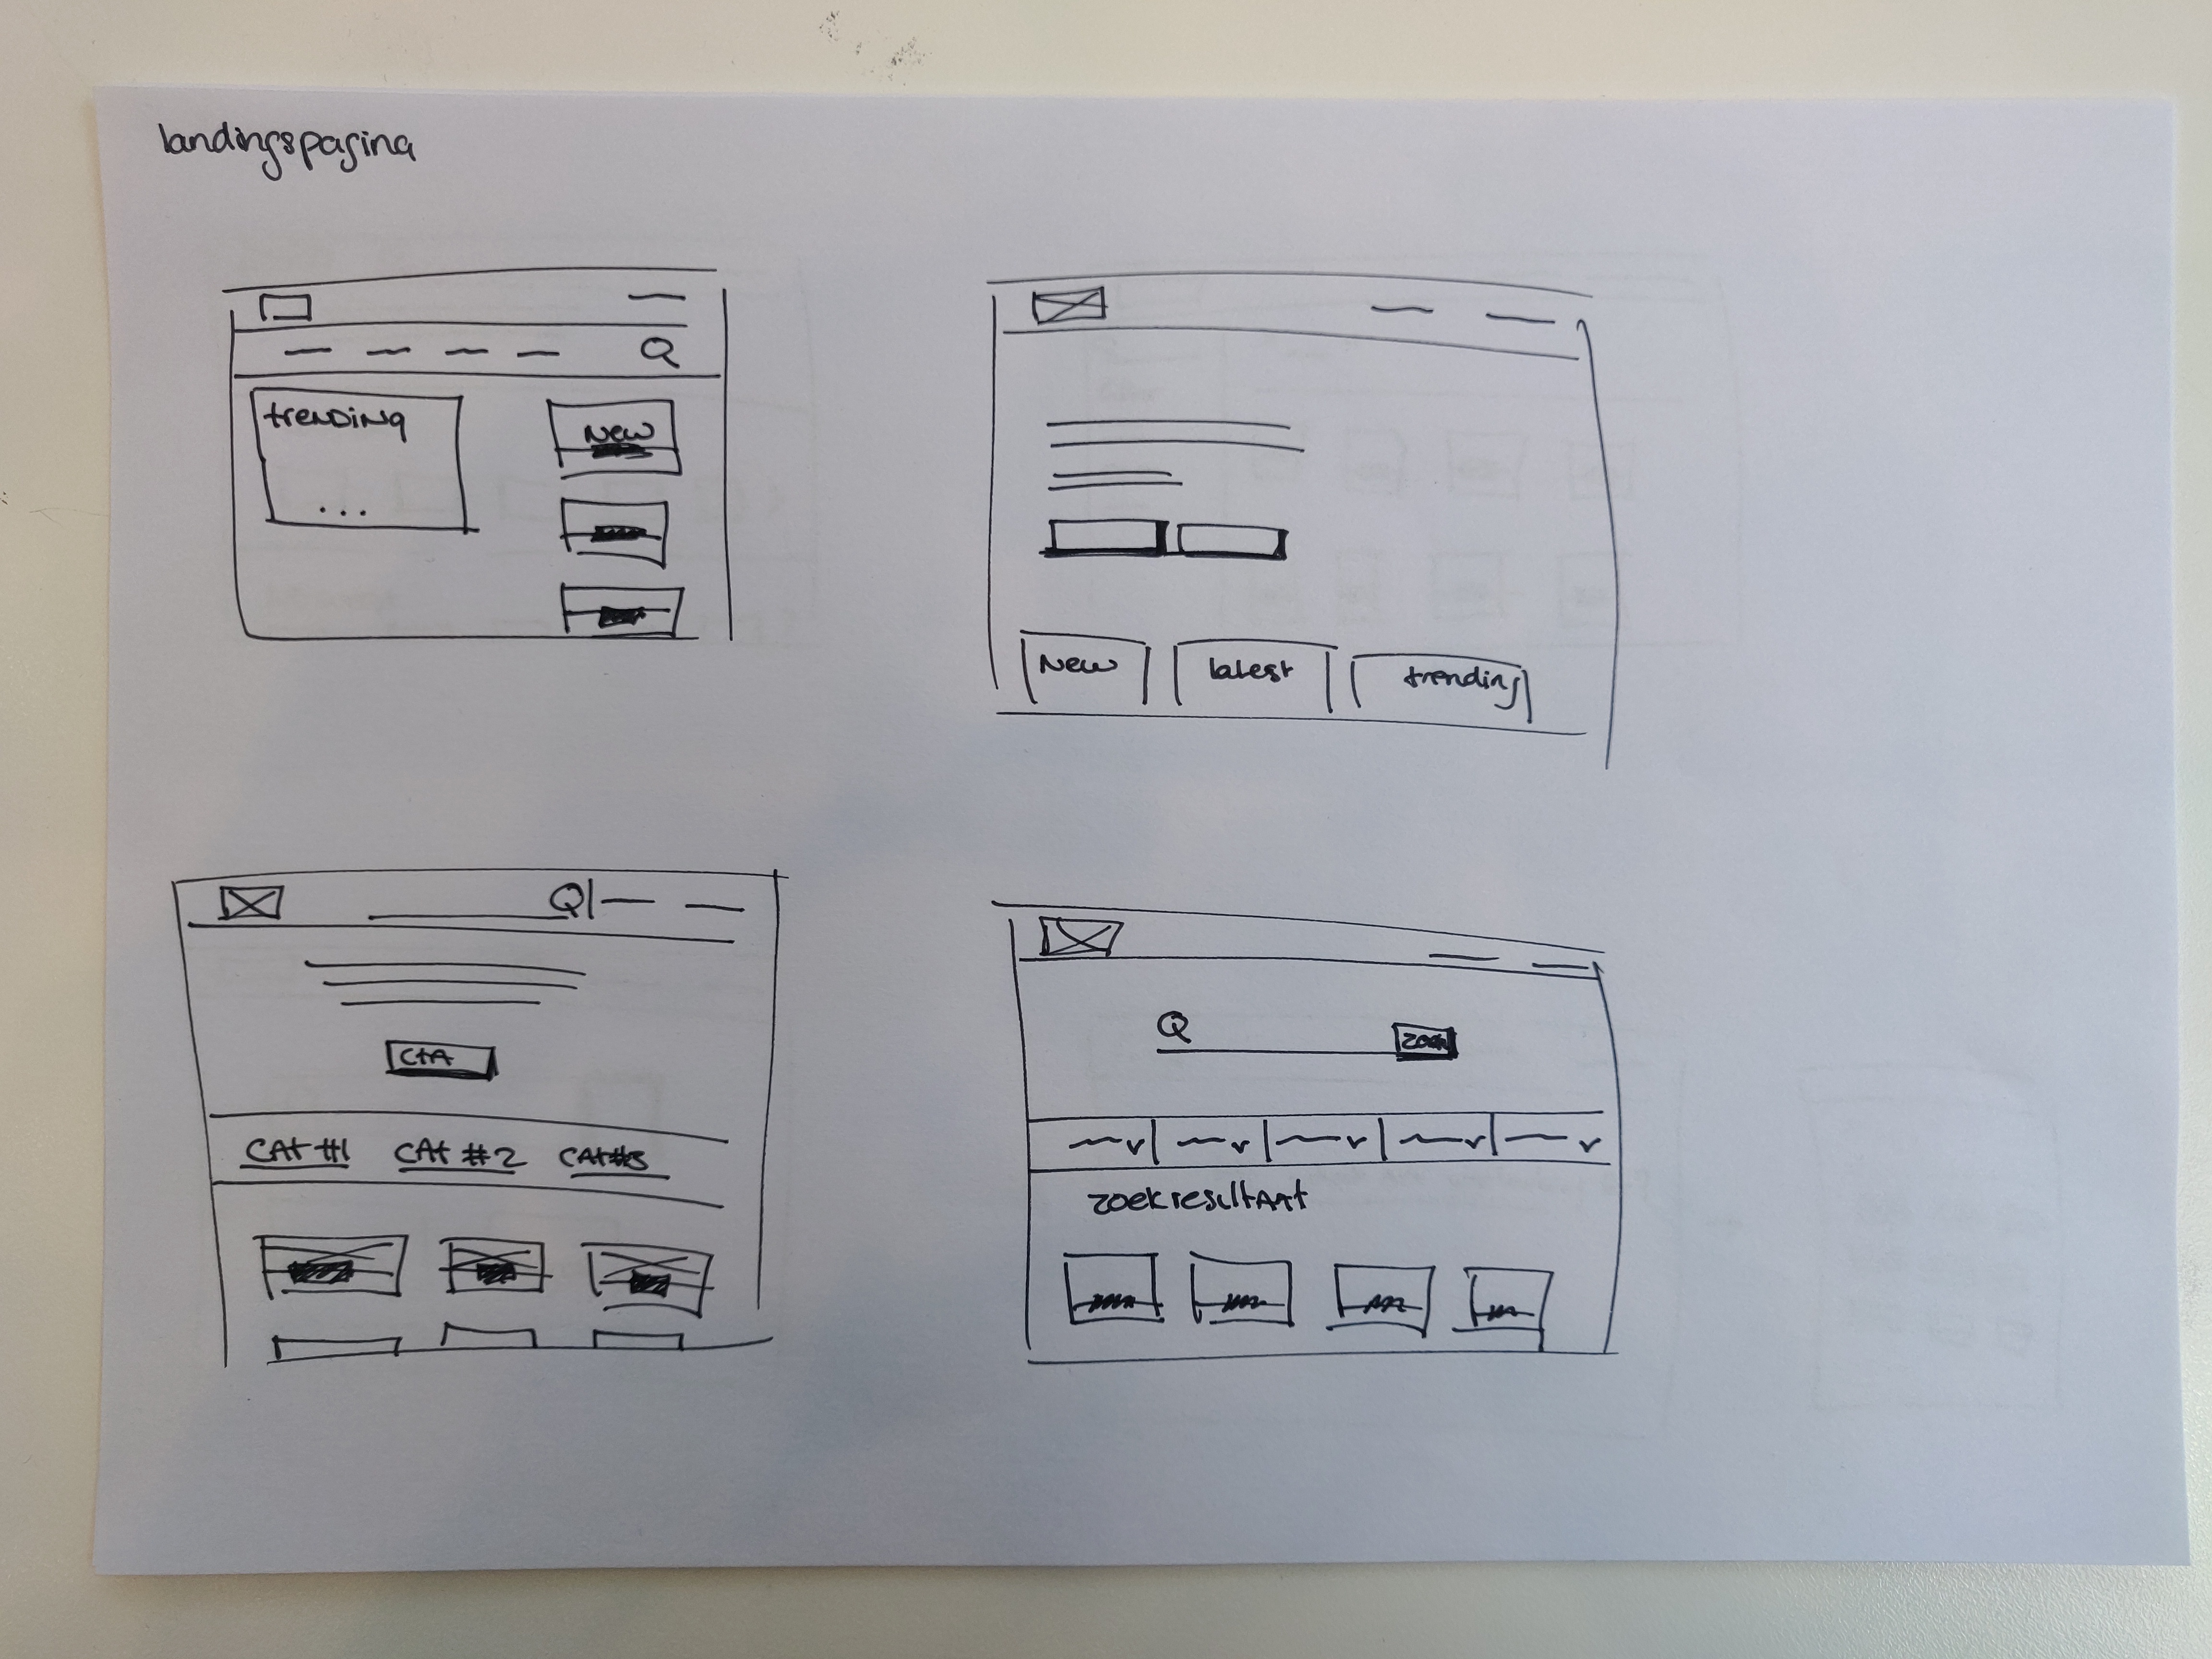 landingspagina
trending
New
...
New
latest
trending
CTA
CAT #1 CAT #2 CAT#3
zoek
zoekresultaat